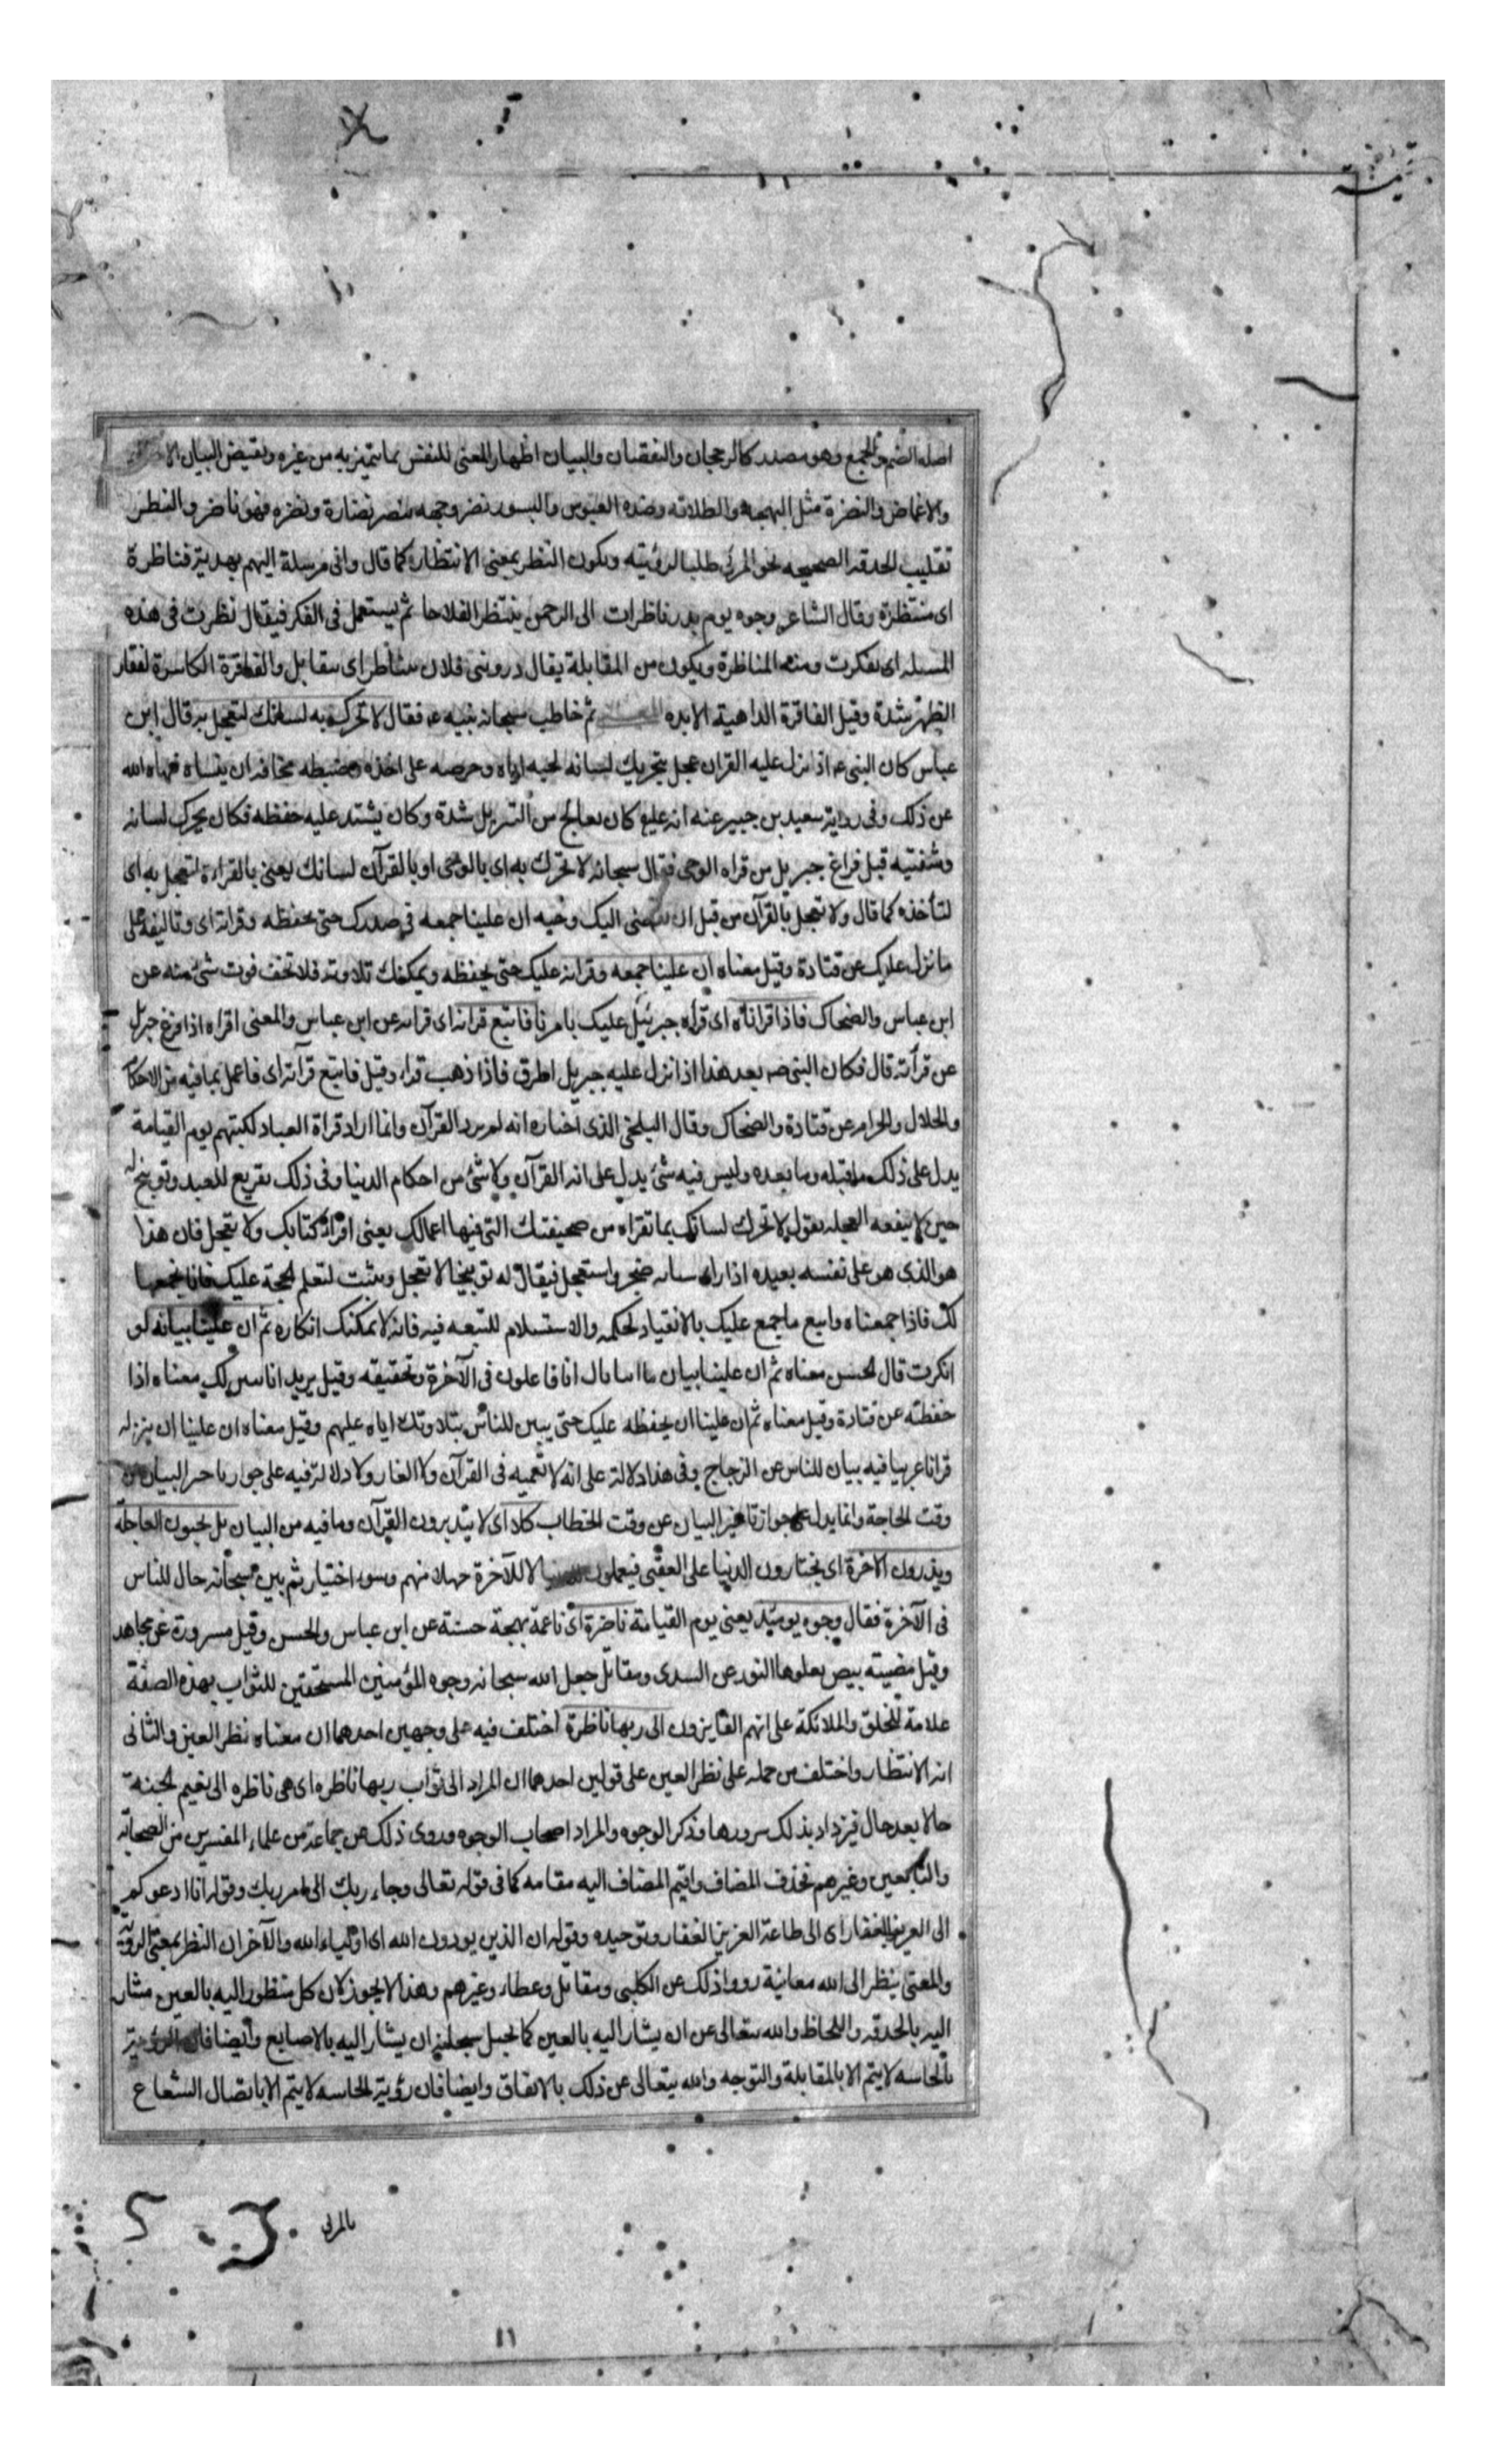 اصله الضم والجمع وهو مصدر كالرجحان والنقصان والبيان اظهار المعنى للنفس بما يتميز به من غيره ونقيض البيان الا
والاغماض والنضرة مثل البهجة والطلاقة وضده العبوس والبسور نضر وجهه ينضر نضارة ونضرة فهو ناضر والنظر
تقليب الحدقة الصحيحه نحو المرئي طلبا لرؤيته ويكون النظر بمعنى الانتظار كما قال وانى مرسلة اليهم بهدية فناظرة
اى منتظرة وقال الشاعر وجوه يوم بدر ناظرات الى الرحمن ينتظر الفلاحا ثم يستعمل فى الفكر فيقال نظرت فى هذه
المسئله اى تفكرت ومنه المناظرة ويكون من المقابلة يقال دور بنى فلان تتناظر اى تتقابل والفاقرة الكاسرة لفقار
الظهر بشدة وقيل الفاقرة الداهية الابده ثم خاطب سبحانه نبيه ع فقال لا تحرك به لسانك لتعجل به قال ابن
عباس كان النبى ع اذا نزل عليه القران عجل بتحريك لسانه لحبه اياه وحرصه على اخذه وضبطه مخافة ان ينساه فنهاه الله
عن ذلك وفى رواية سعيد بن جبير عنه انه عليع كان يعالج من التنزيل شدة وكان يشتد عليه حفظه فكان يحرك لسانه
وشفتيه قبل فراغ جبريل من قراه الوحى فقال سبحانه لا تحرك به اى بالوحى او بالقرآن لسانك يعنى بالقراءة لتعجل به اى
لتأخذه كما قال ولا تعجل بالقرآن من قبل ان يقضى اليك وحيه ان علينا جمعه فى صدرك حتى تحفظه وقرانه اى وتاليفه على
ما نزل عليك عن قتادة وقيل معناه ان علينا جمعه وقرانه عليك حتى تحفظه ويمكنك تلاوته فلا تخف فوت شئ منه عن
ابن عباس والضحاك فاذا قراناه اى قرأه جبرئيل عليك بامرنا فاتبع قرانه اى قرانه عن ابن عباس والمعنى اقراه اذا فرغ جبريل
عن قرآته قال فكان النبى ص بعد هذا اذا نزل عليه جبريل اطرق فاذا ذهب قراء وقيل فاتبع قرآنه اى فاعمل بما فيه من الاحكام
والحلال والحرام عن قتادة والضحاك وقال البلخى الذى اختاره انه لم يرد القرآن وانما اراد قراة العباد لكتبهم يوم القيامة
يدل على ذلك ما قبله وما بعده وليس فيه شئ يدل على انه القرآن ولا شئ من احكام الدنيا وفى ذلك تقريع للعبد وتوبيخ له
حين لا ينفعه العجله يقول لا تحرك لسانك بما تقراه من صحيفتك التى فيها اعمالك يعنى اقراء كتابك ولا تعجل فان هذا
هو الذى هو على نفسه بصيره اذا راى سيئاته ضجر واستعجل فيقال له توبيخا لا تعجل وتثبت لتعلم الحجة عليك فانا نجمعها
لك فاذا جمعناه واتبع ما جمع عليك بالانقياد لحكمه والاستسلام للتبعه فيه فانه لا يمكنك انكاره ثم ان علينا بيانه لو
انكرت قال الحسن معناه ثم ان علينا بيان ما انبانا انا فاعلون فى الآخرة وتحقيقه وقيل يريد انا نبين لك معناه اذا
حفظته عن قتادة وقيل معناه ثم ان علينا ان نحفظه عليك حتى يبين للناس بتلاوتك اياه عليهم وقيل معناه ان علينا ان ينزله
قرانا عربيا فيه بيان للناس عن الزجاج وفى هذا دلالة على انه لا تعميه فى القرآن ولا الغاز ولا دلالة فيه على جواز تاخير البيان عن
وقت الحاجة وانما يدل على جواز تاخير البيان عن وقت الخطاب كلا اى لا يتدبرون القرآن وما فيه من البيان بل تحبون العاجلة
وتذرون الاخرة اى يختارون الدنيا على العقبى فيعملون للدنيا لا للآخرة جهلا منهم وسوء اختيار ثم بين سبحانه حال الناس
فى الآخرة فقال وجوه يومئذ يعنى يوم القيامة ناضرة اى ناعمة بهجة حسنة عن ابن عباس والحسن وقيل مسرورة عن مجاهد
وقيل مضيئه بيض يعلوها النور عن السدى ومقاتل جعل الله سبحانه وجوه المؤمنين المستحقين للثواب بهذه الصفة
علامة للخلق والملائكة على انهم الفايزون الى ربها ناظرة اختلف فيه على وجهين احدهما ان معناه نظر العين والثانى
انه الانتظار واختلف من حمله على نظر العين على قولين احدهما ان المراد الى ثواب ربها ناظره اى هى ناظره الى نعيم الجنة
حالا بعد حال فيزداد بذلك سرورها وذكر الوجوه والمراد اصحاب الوجوه وروى ذلك عن جماعة من علماء المفسرين من الصحابة
والتابعين وغيرهم فحذف المضاف واقيم المضاف اليه مقامه كما فى قوله تعالى وجاء ربك الى امر ربك وقوله انا ادعوكم
الى العزيز الغفار اى الى طاعة العزيز الغفار وتوحيده وقوله ان الذين يوذون الله اى اولياء الله والآخر ان النظر بمعنى الروية
والمعنى ينظر الى الله معاينة رووا ذلك عن الكلبى ومقاتل وعطاء وغيرهم وهذا لا يجوز لان كل منظور اليه بالعين مشار
اليه بالحدقه واللحاظ والله يتعالى عن ان يشار اليه بالعين كما يجل سبحانه ان يشار اليه بالاصابع وايضا فان الروية
بالحاسه لا يتم الا بالمقابلة والتوجه والله يتعالى عن ذلك بالاتفاق وايضا فان رؤية الحاسه لا يتم الا باتصال الشعاع
بالمرئى